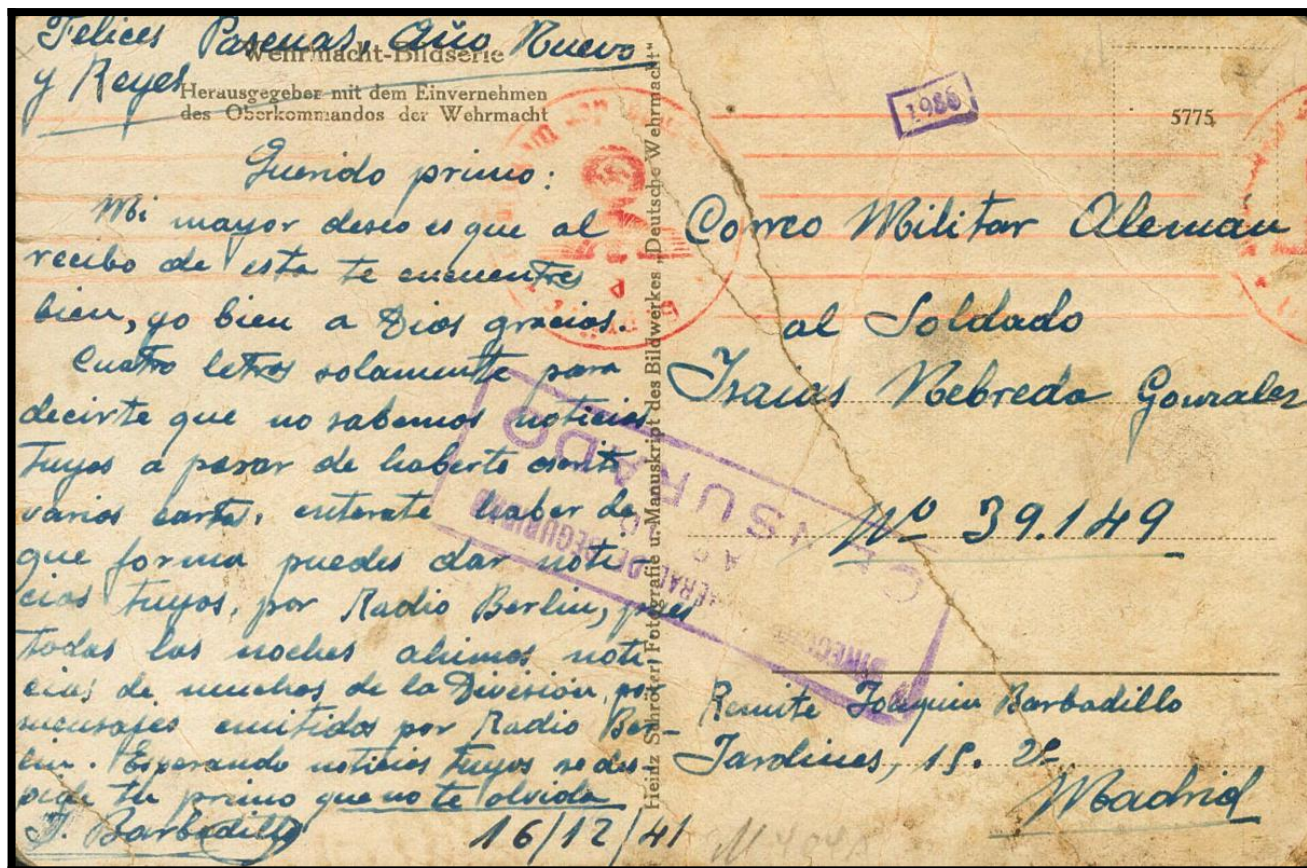 Felices Pascuas, Año Nuevo
y Reyes
Wehrmacht-Bildserie
Herausgegeber mit dem Einvernehmen
des Oberkommandos der Wehrmacht
Querido primo:
Mi mayor deseo es que al
recibo de esta te encuentres
bien, yo bien a Dios gracias.
Cuatro letras solamente para
decirte que no sabemos noticias
tuyas a pesar de haberte escrito
varias cartas, enterate haber de
que forma puedes dar noti-
cias tuyas, por Radio Berlin, pues
todas las noches ahimos noti
cias de muchos de la División, por
mensajes emitidos por Radio Ber-
lin. Esperando noticias tuyas se des-
pide tu primo que no te olvida
J. Barbadillo
16/12/41
Heinz Schröter, Fotografie u. Manuskript des Bildwerkes „Deutsche Wehrmacht"
1986
5775
Correo Militar Aleman
al Soldado
Isaias Nebreda Gonzalez
Nº 39.149
Remite Joaquin Barbadillo
Jardines, 15. 2º
Madrid
DIRECCION GENERAL DE SEGURIDAD
CENSURADO